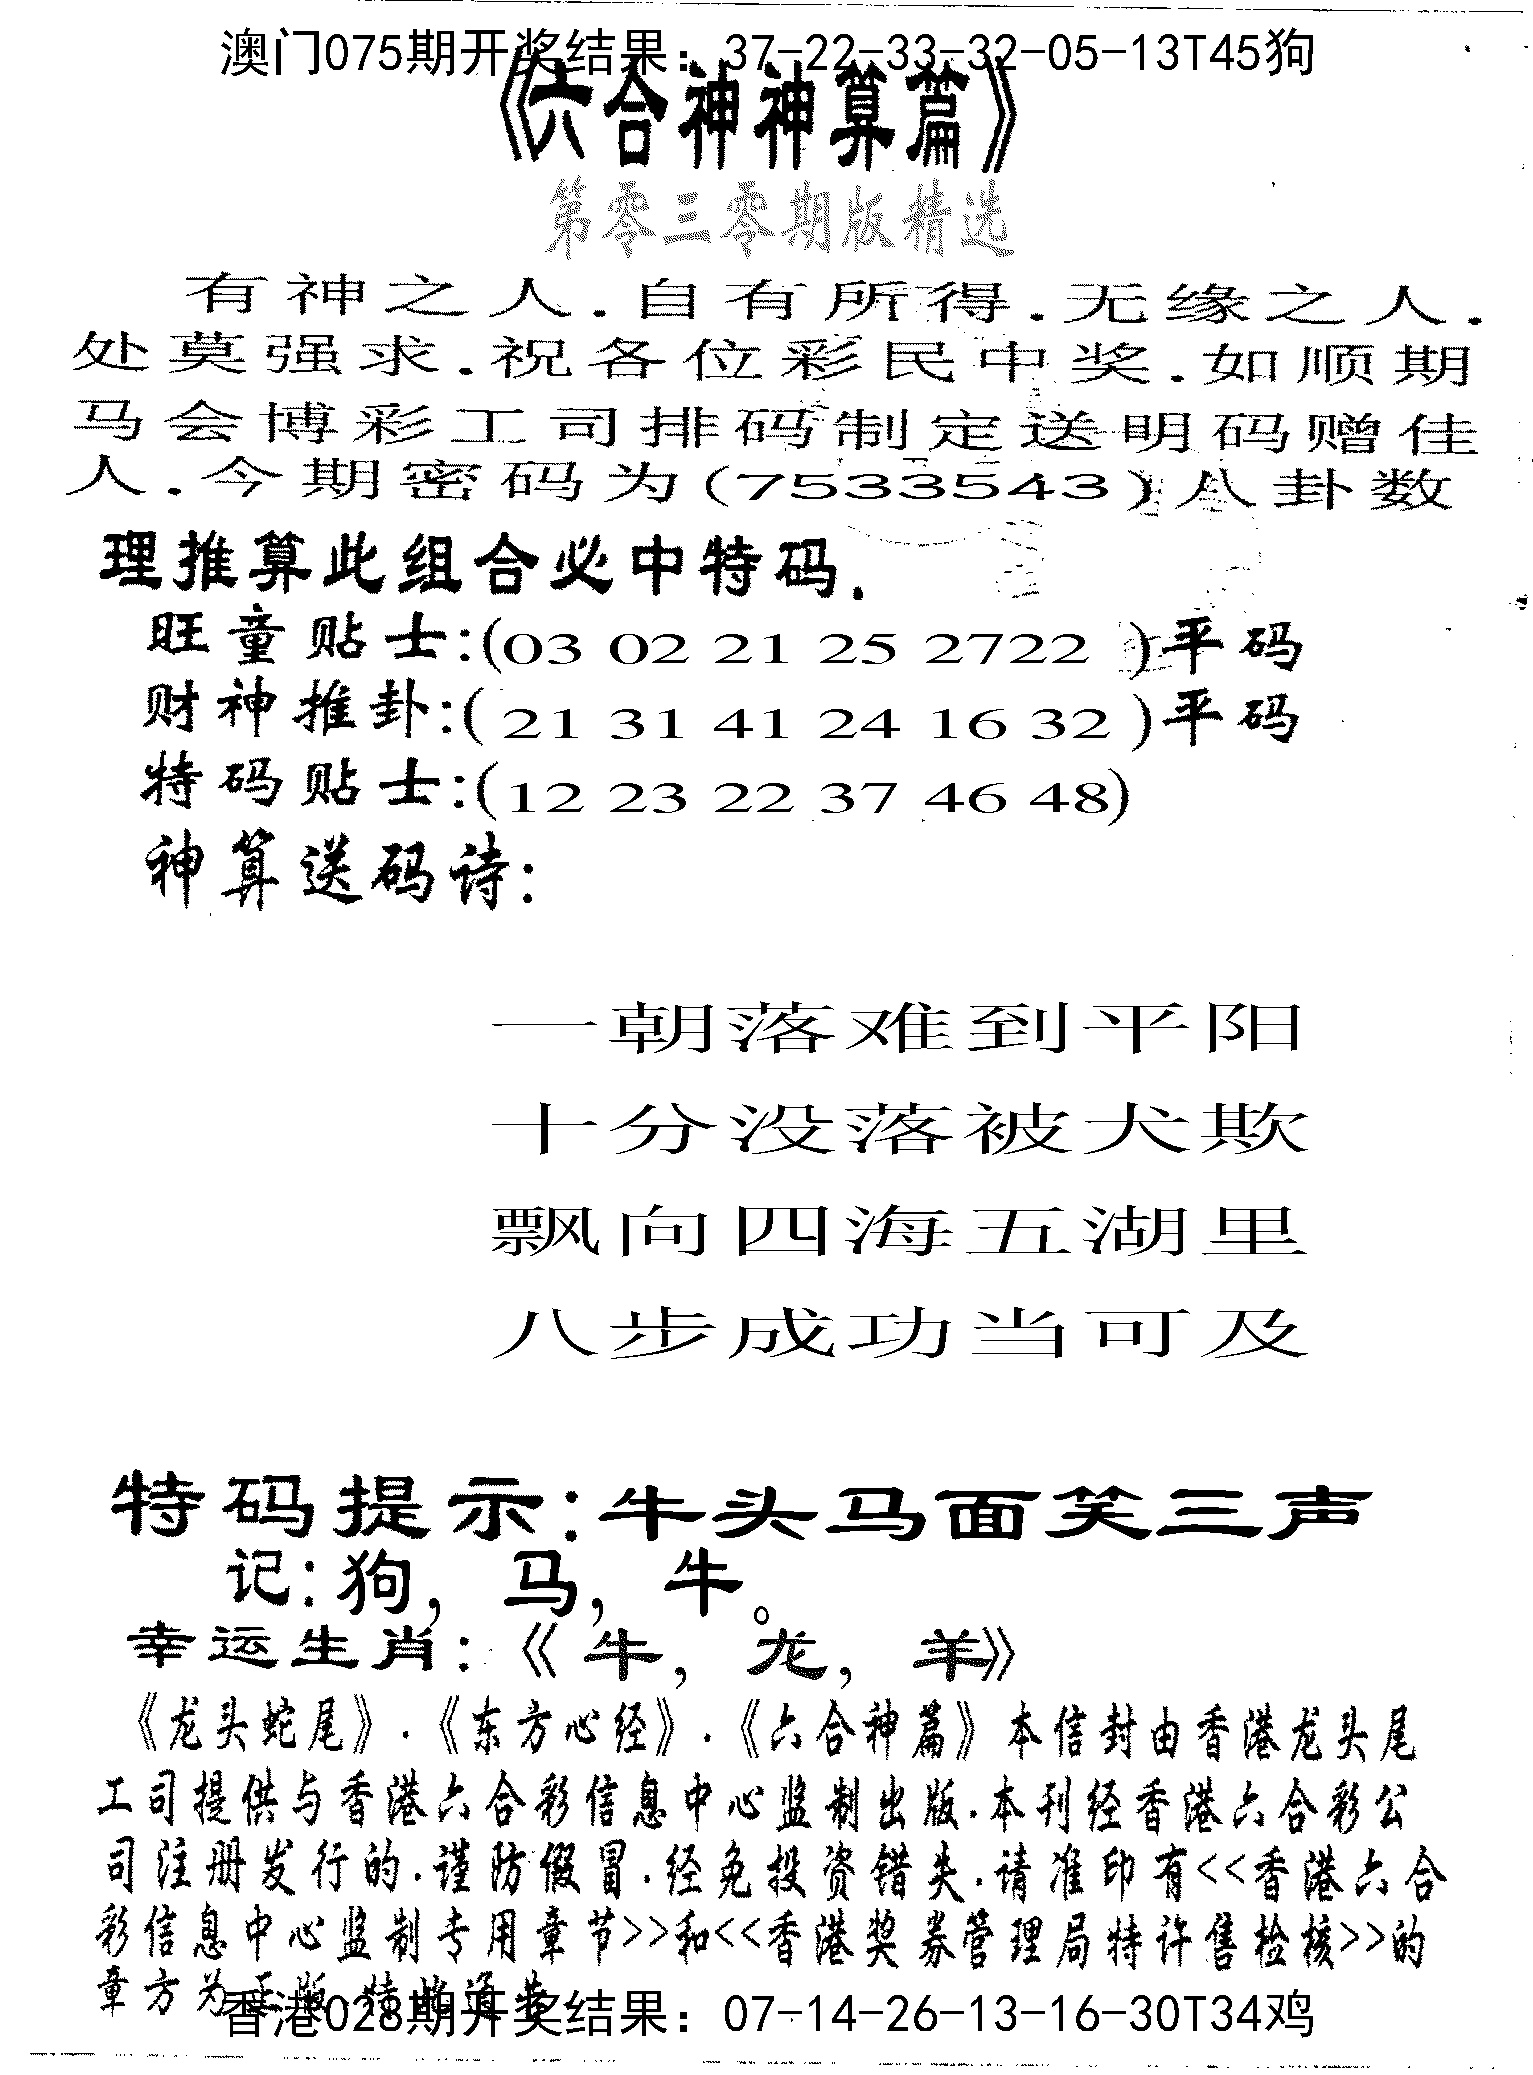 澳门075期开奖结果：37-22-33-32-05-13T45狗
《六合神神算篇》
第零三零期版精选
有神之人.自有所得.无缘之人.
处莫强求.祝各位彩民中奖.如顺期
马会博彩工司排码制定送明码赠佳
人.今期密码为(7533543)八卦数
理推算此组合必中特码.
旺童贴士:(03 02 21 25 2722 )平码
财神推卦:( 21 31 41 24 16 32 )平码
特码贴士:(12 23 22 37 46 48)
神算送码诗:
一朝落难到平阳
十分没落被犬欺
飘向四海五湖里
八步成功当可及
特码提示:牛头马面笑三声
记:狗,马,牛。
幸运生肖:《牛,龙,羊》
《龙头蛇尾》.《东方心经》.《六合神篇》本信封由香港龙头尾
工司提供与香港六合彩信息中心监制出版.本刊经香港六合彩公
司注册发行的.谨防假冒.经免投资错失.请准印有<<香港六合
彩信息中心监制专用章节>>和<<香港奖券管理局特许售检核>>的
章方为正版.特此通告
香港028期开奖结果：07-14-26-13-16-30T34鸡